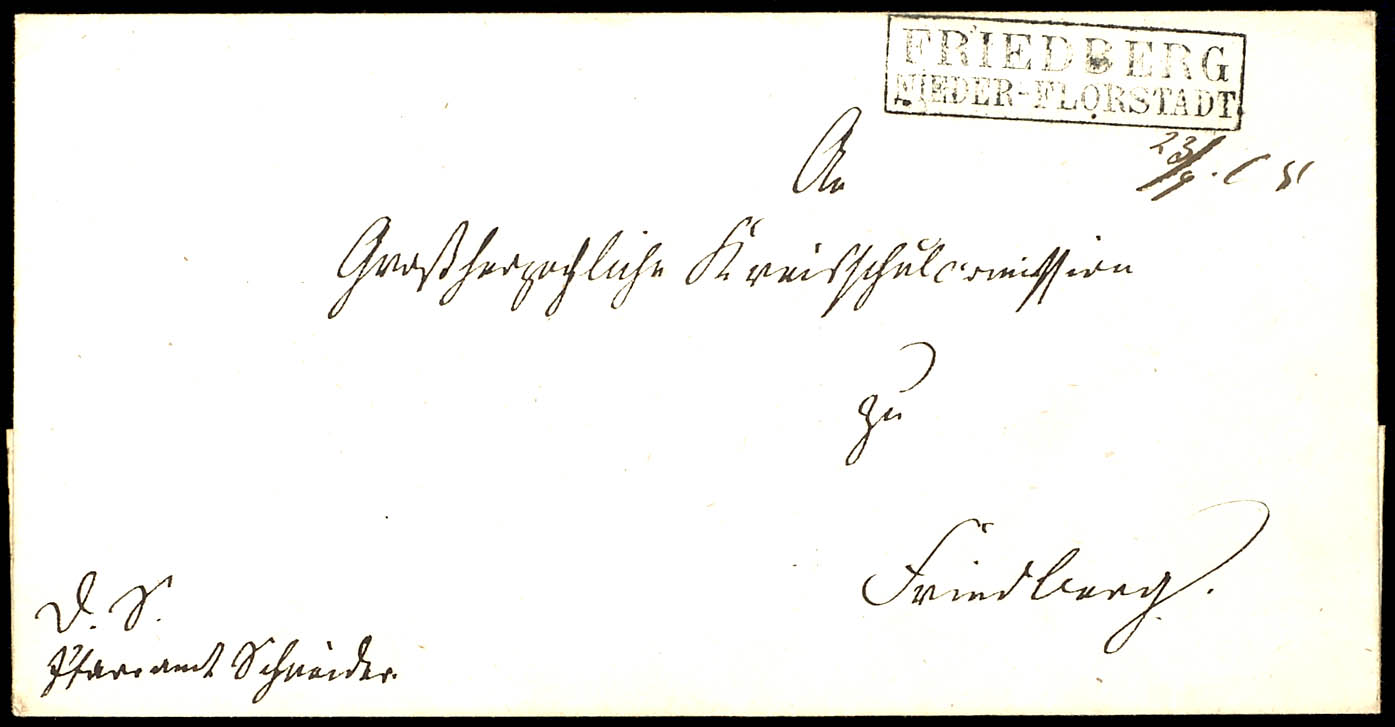 FRIEDBERG
NIEDER-FLORSTADT.
23/9.
An
Großherzogliche Kreisschulcomission
zu
Friedberg.
D. S.
Pfarramt Schneider.